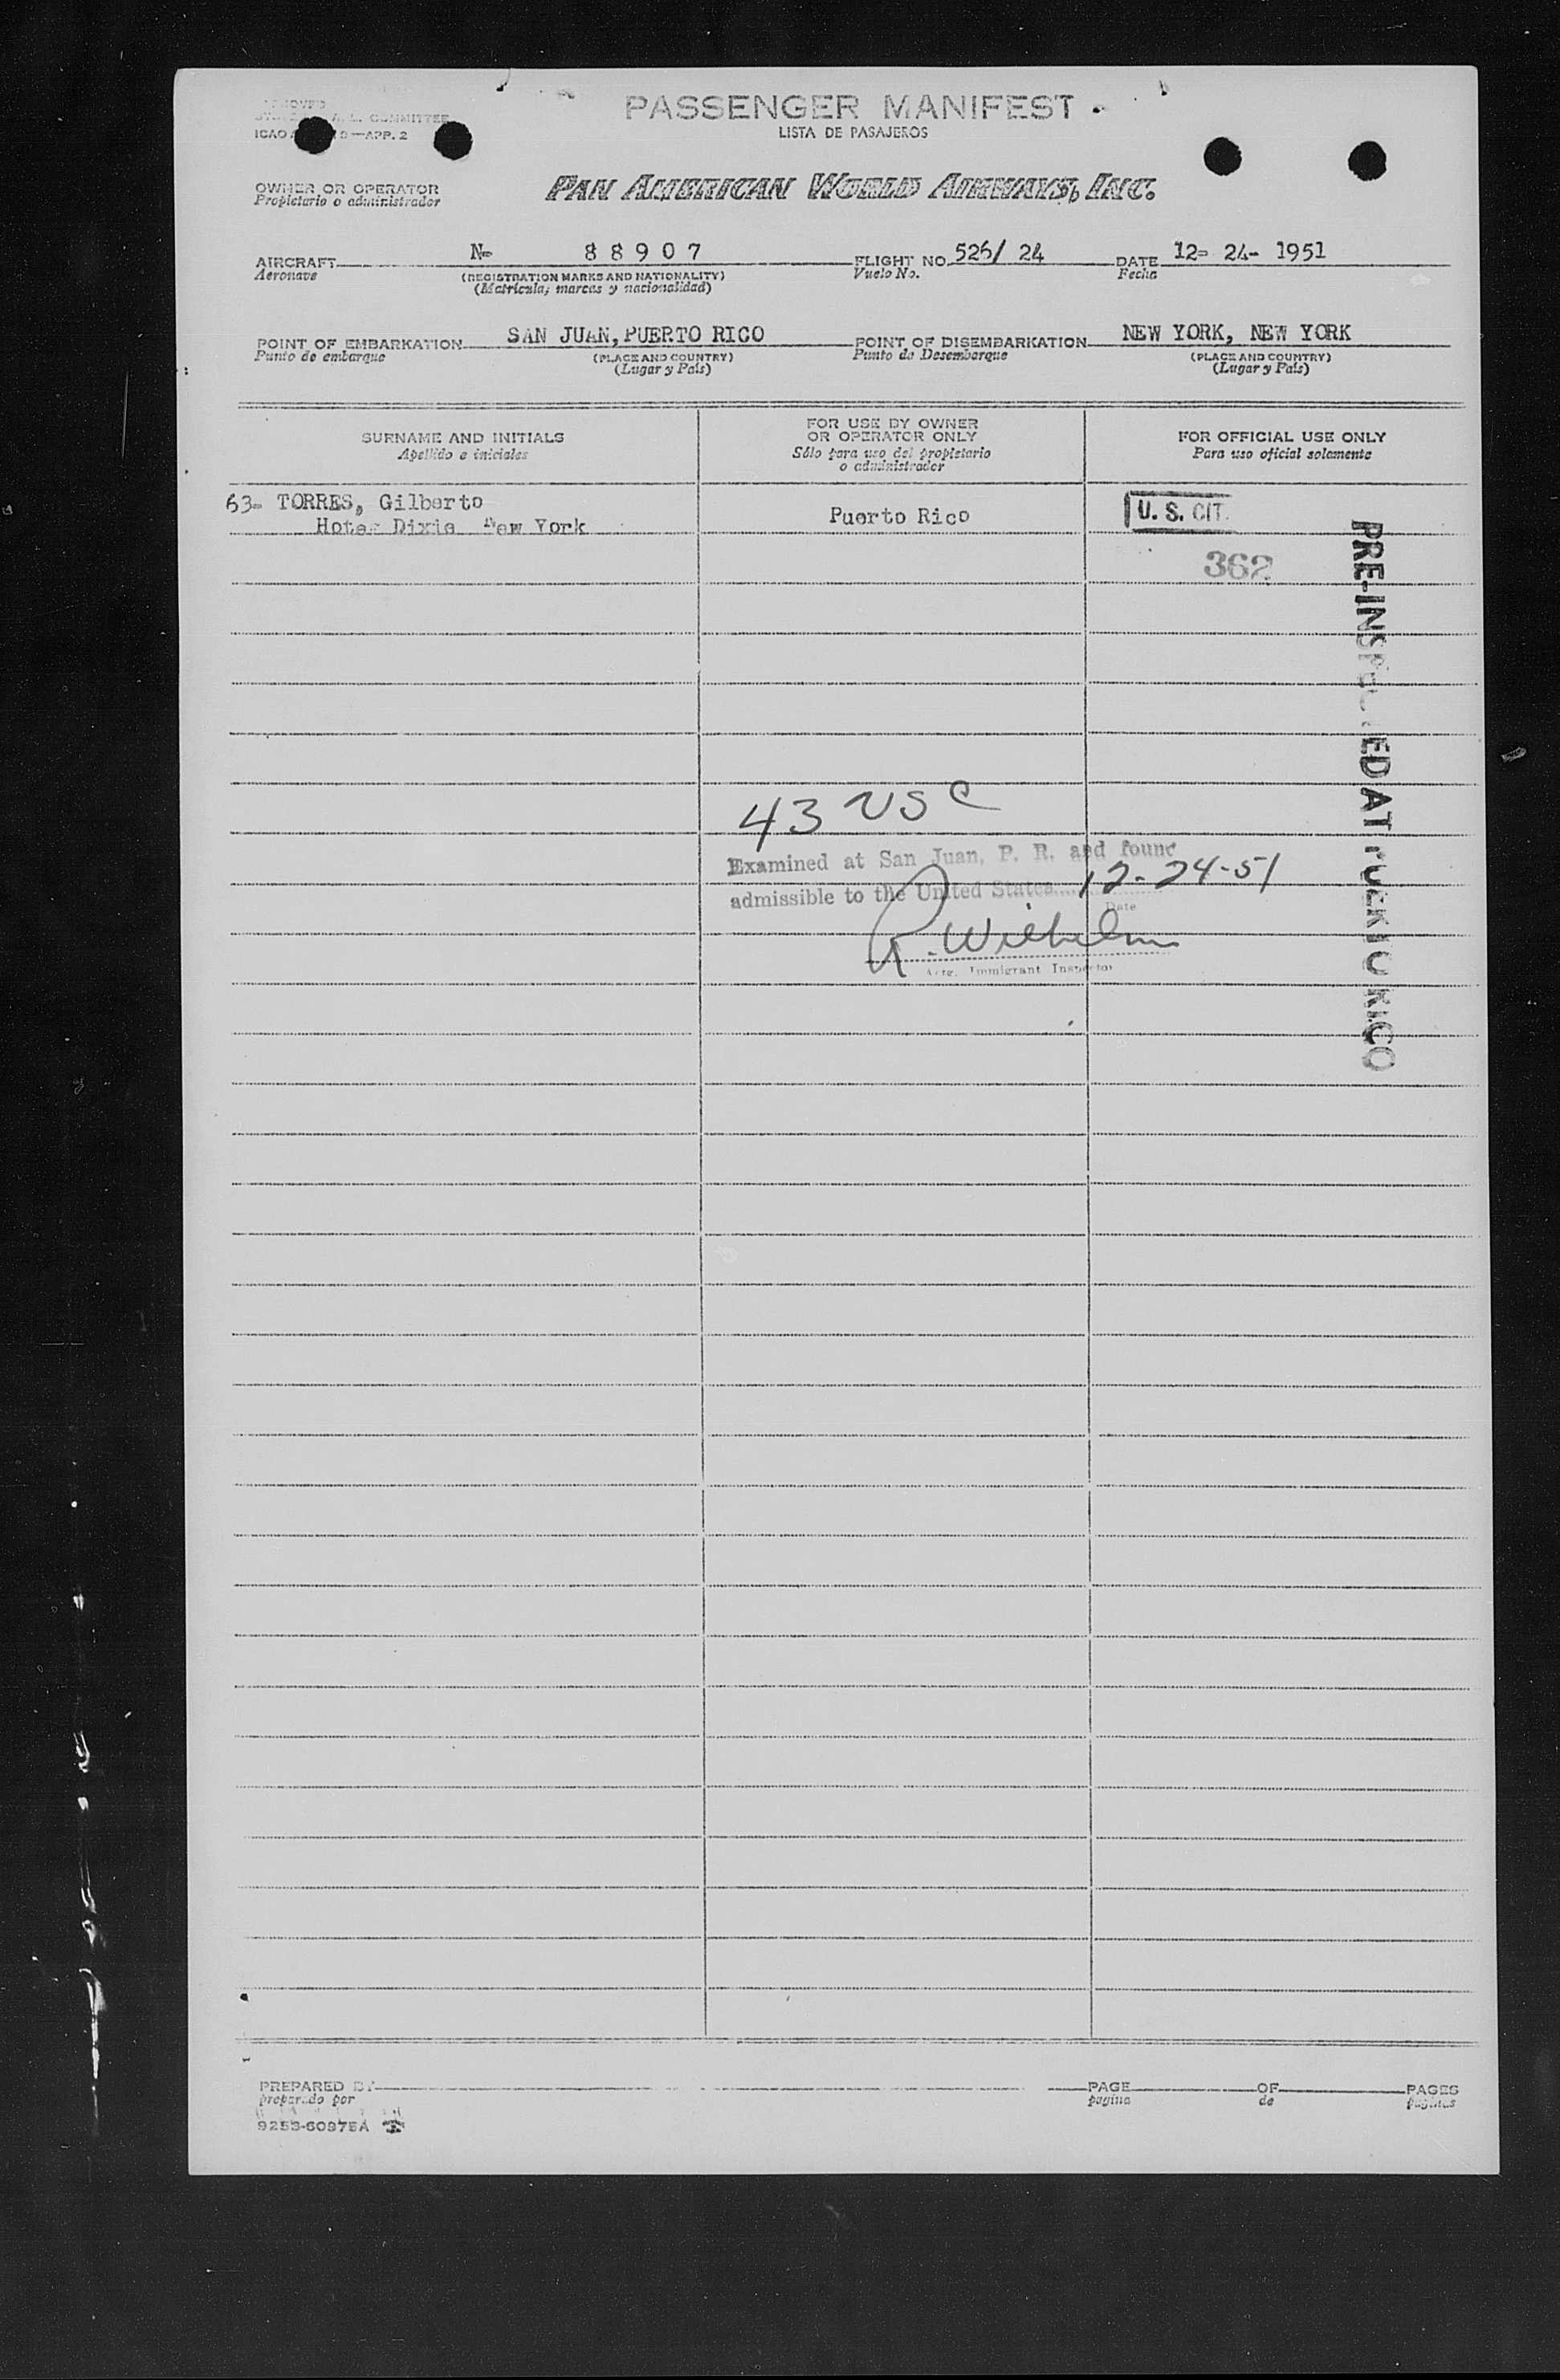 PASSENGER MANIFEST
LISTA DE PASAJEROS
COMMITTEE
ICAO 9—APP. 2
OWNER OR OPERATOR
Propietario o administrador
PAN AMERICAN WORLD AIRWAYS, INC.
AIRCRAFT N- 88907 FLIGHT NO. 526/ 24 DATE 12- 24- 1951
Aeronave (REGISTRATION MARKS AND NATIONALITY) Vuelo No. Fecha
(Matrícula, marcas y nacionalidad)
POINT OF EMBARKATION SAN JUAN, PUERTO RICO POINT OF DISEMBARKATION NEW YORK, NEW YORK
Punto de embarque (PLACE AND COUNTRY) Punto de Desembarque (PLACE AND COUNTRY)
(Lugar y País) (Lugar y País)
SURNAME AND INITIALS
Apellido e iniciales
FOR USE BY OWNER
OR OPERATOR ONLY
Sólo para uso del propietario
o administrador
FOR OFFICIAL USE ONLY
Para uso oficial solamente
63- TORRES, Gilberto
Hotel Dixie New York
Puerto Rico
U. S. CIT.
362
PRE-INSPECTED AT PUERTO RICO
43 USC
Examined at San Juan, P. R. and found
admissible to the United States 12-24-51
Date
R. Wilhelm
Actg. Immigrant Inspector
PREPARED BY PAGE OF PAGES
preparado por pagina de paginas
9253-60975A